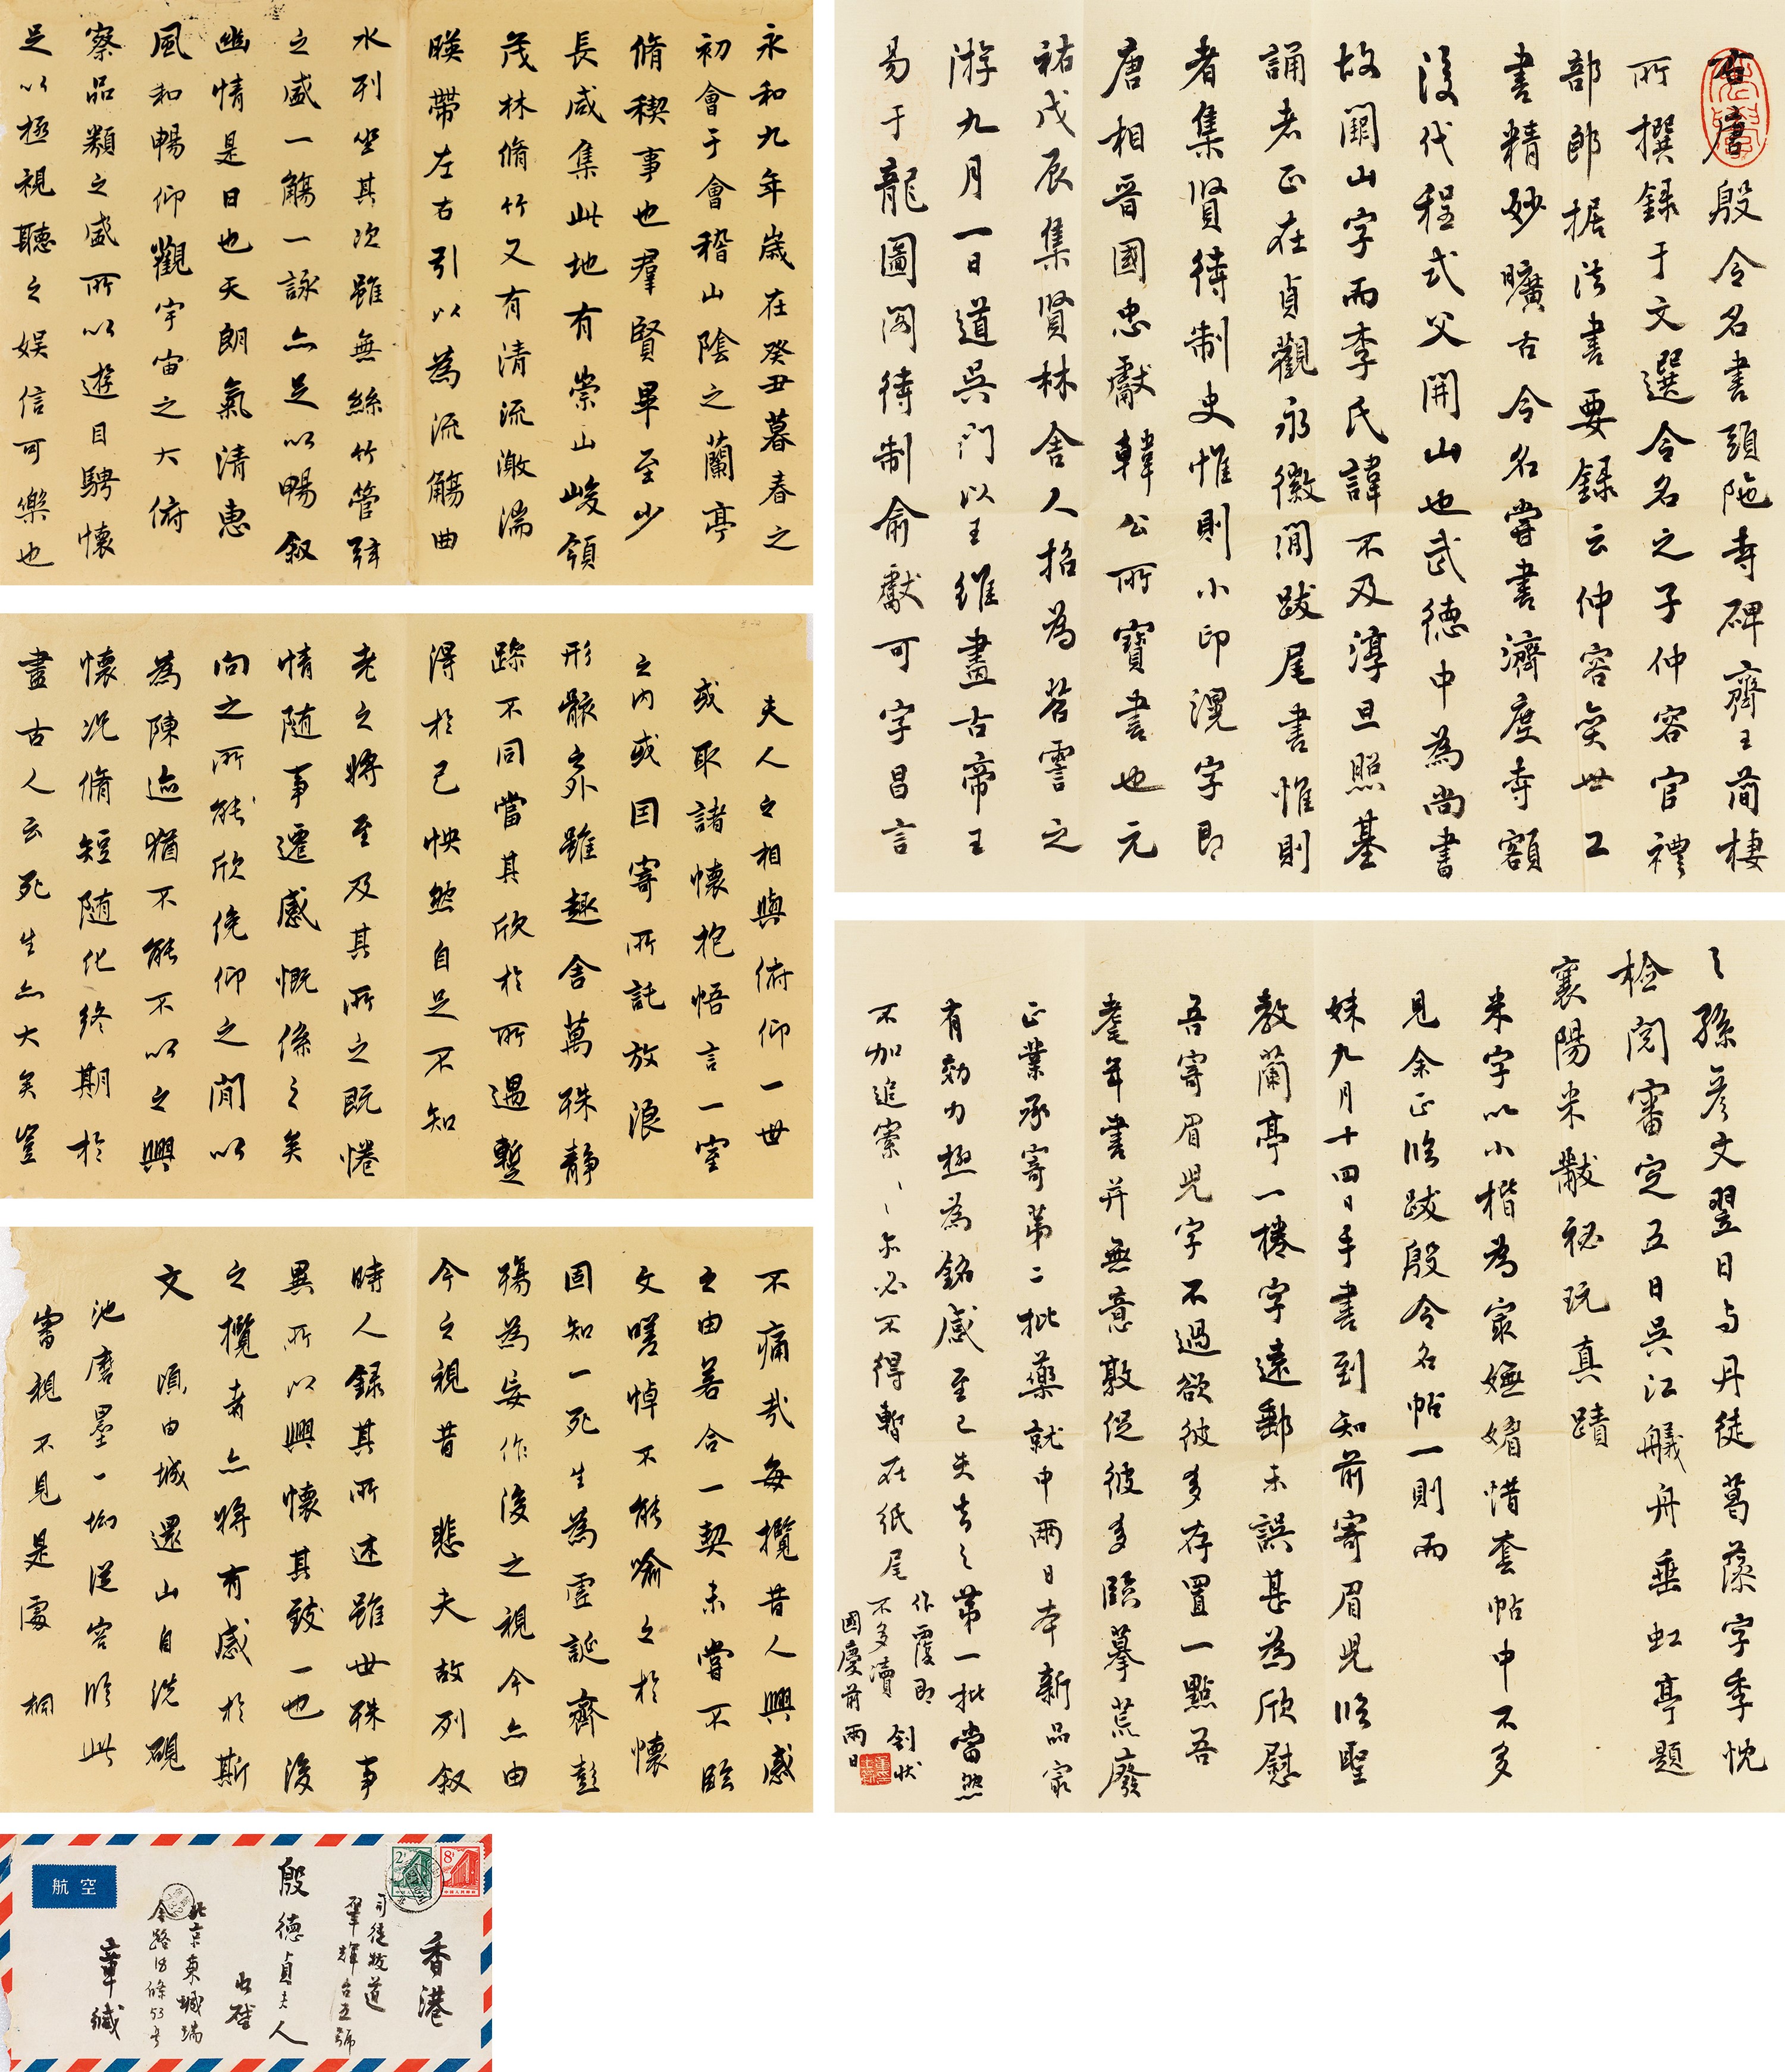 永和九年歲在癸丑暮春之
初會于會稽山陰之蘭亭
脩稧事也羣賢畢至少
長咸集此地有崇山峻領
茂林脩竹又有清流激湍
暎帶左右引以為流觴曲
水列坐其次雖無絲竹管弦
之盛一觴一詠亦足以暢叙
幽情是日也天朗氣清惠
風和暢仰觀宇宙之大俯
察品類之盛所以遊目騁懷
足以極視聽之娛信可樂也
夫人之相與俯仰一世
或取諸懷抱悟言一室
之內或因寄所託放浪
形骸之外雖趣舍萬殊靜
躁不同當其欣於所遇蹔
得於己怏然自足不知
老之將至及其所之既惓
情隨事遷感慨係之矣
向之所欣俛仰之閒以
為陳迹猶不能不以之興
懷況脩短隨化終期於
盡古人云死生亦大矣豈
不痛哉每攬昔人興感
之由若合一契未嘗不臨
文嗟悼不能喻之於懷
固知一死生為虛誕齊彭
殤為妄作後之視今亦由
今之視昔 悲夫故列叙
時人錄其所述雖世殊事
異所以興懷其致一也後
之攬者亦將有感於斯
文 頃由城還山自洗硯
池磨墨一坳從容臨此
審視不見是處 桐
右唐殷令名書頭陁寺碑齊王簡棲
所撰錄于文選令名之子仲容官禮
部郎据法書要録云仲容奕世工
書精妙曠古今名嘗書濟度寺額
後代程式父開山也武德中為尚書
故闕山字而季氏諱不及淳旦照基
誦者正在貞觀永徽間跋尾書惟則
者集賢待制史惟則小印滉字即
唐相晉國忠獻韓公所寶書也元
祐戊辰集賢林舍人招為苕霅之
游九月一日道吳門以王維畫古帝王
易于龍圖閣待制俞獻可字昌言
之孫彥文翌日与丹徒葛藻字季忱
檢閱審定五日吳江艤舟垂虹亭題
襄陽米黻祕玩真蹟
米字以小楷為最嫵媚惜套帖中不多
見余正臨跋殷令名帖一則而
妹九月十四日手書到知前寄眉兒臨聖
教蘭亭一捲字遠郵未誤甚為欣慰
吾寄眉兒字不過欲彼多存置一點吾
耄年書并無意敦促彼多臨摹荒廢
正業承寄第二批藥就中兩日本新品最
有効力極為銘感至已失去之第一批當然
不加追索、、亦必不得暫在紙尾
作覆即 釗狀
不多瀆
國慶前兩日
香港
司徒拔道
肇輝台五號
殷德貞夫人
收啓
北京東城
章緘
航空
2
8